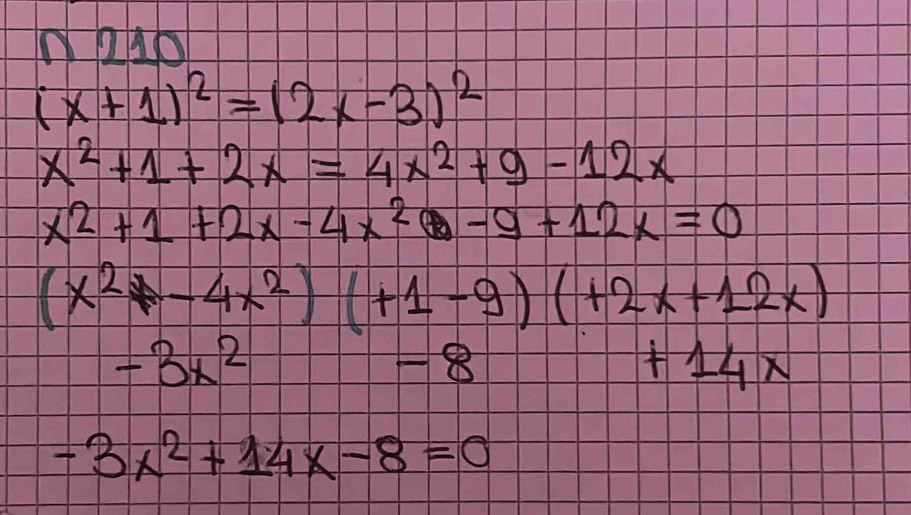 n 210
(x+1)² = (2x-3)²
x² + 1 + 2x = 4x² + 9 - 12x
x² + 1 + 2x - 4x² - 9 + 12x = 0
(x² - 4x²) (+1 - 9) (+2x + 12x)
-3x² -8 +14x
-3x² + 14x - 8 = 0